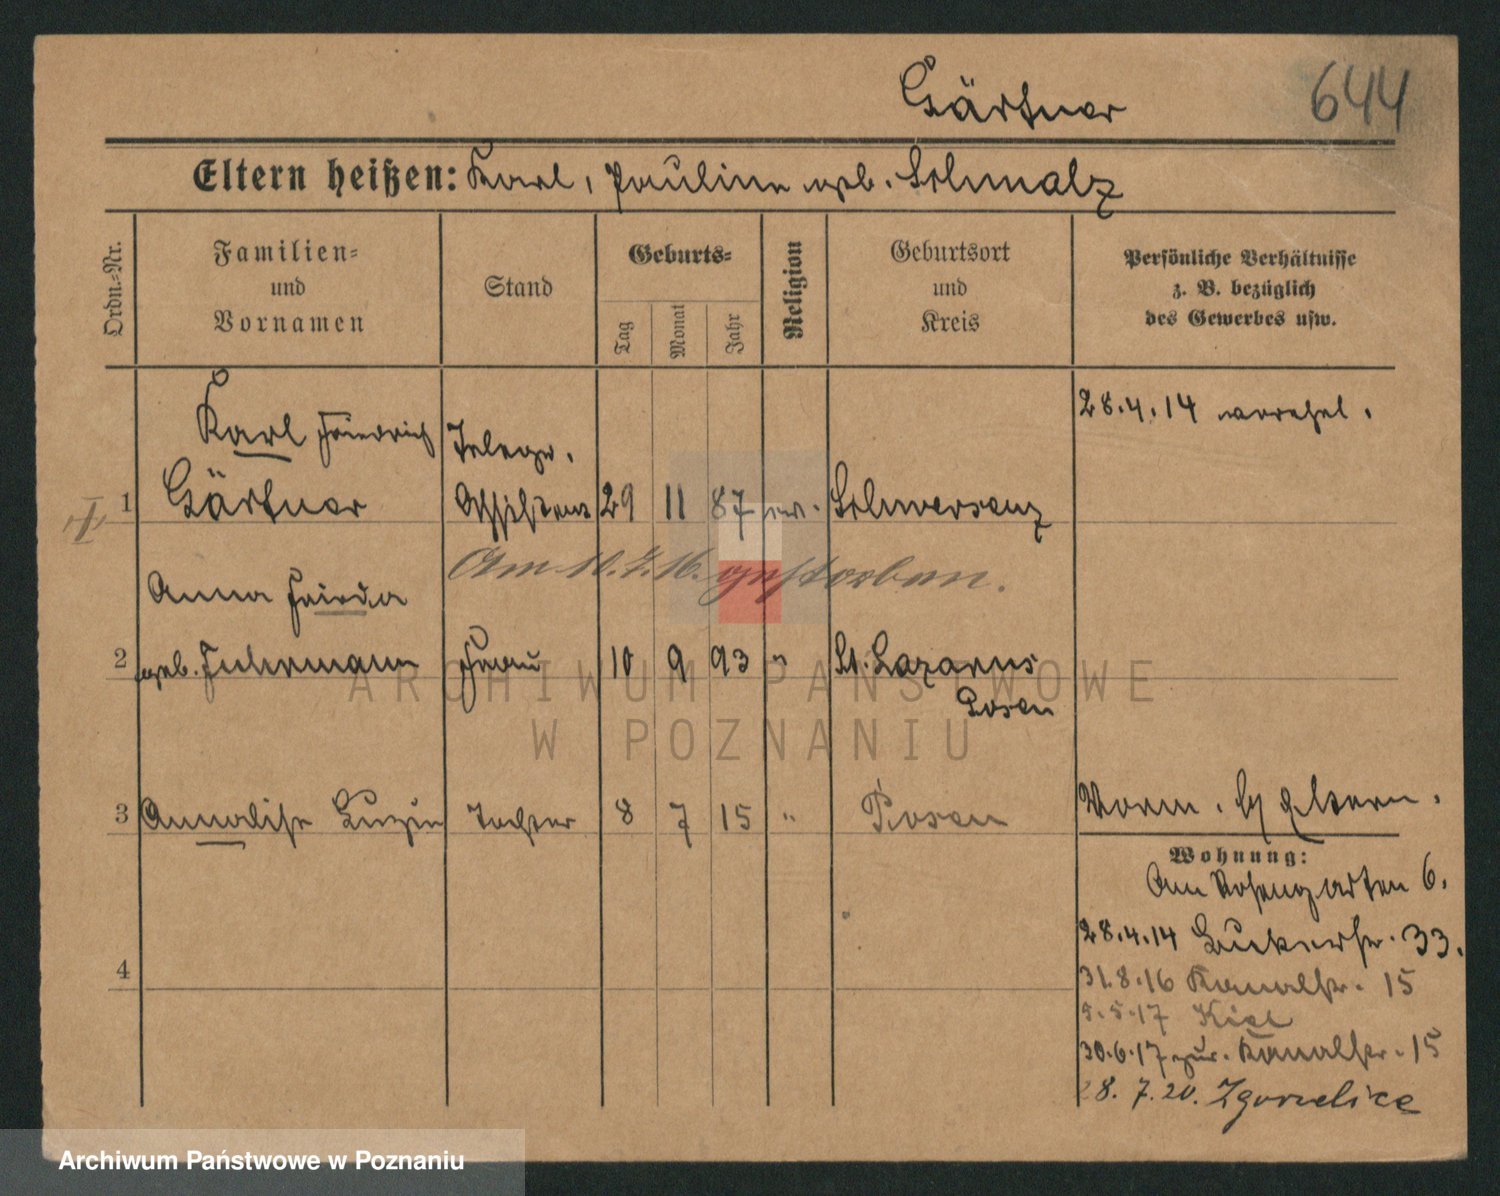 Gärtner
644
Eltern heißen: Karl, Pauline geb. Schmalz
Ordn.-Nr.
Familien-
und
Vornamen
Stand
Geburts-
Tag
Monat
Jahr
Religion
Geburtsort
und
Kreis
Persönliche Verhältnisse
z. B. bezüglich
des Gewerbes usw.
28.4.14 verehel.
Karl Friedrich
Telegr.
1 Gärtner Assistent 29 11 87 ev. Schwersenz
Am 10.7.16. gestorben.
Anna Frieda
2 geb. Fuhrmann Frau 10 9 93 " St. Lazarus
Posen
3 Annelise Tochter 8 7 15 " Posen
Vorm. b/ Eltern.
Wohnung:
Am Rosengarten 6.
28.4.14 33.
31.8.16 Kanalstr. 15
5.5.17 Kiel
30.6.17 zur. Kanalstr. 15
28.7.20. Zgorzelice
4
ARCHIWUM PAŃSTWOWE
W POZNANIU
Archiwum Państwowe w Poznaniu